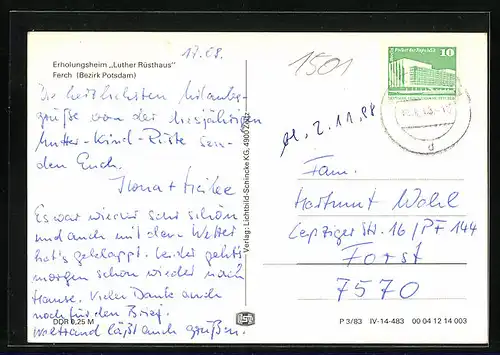 17.8.
1501
Erholungsheim „Luther Rüsthaus"
Ferch (Bezirk Potsdam)
Die herzlichsten Urlaubs-
grüße von der diesjährigen
Mutter-Kind-Rüste sen-
den Euch
Ilona + Heike
Es war wieder sehr schön
und auch mit dem Wetter
hat's geklappt. Leider geht's
morgen schon wieder nach
Hause. Vielen Dank auch
noch für den Brief.
läßt auch grüßen.
DDR 0,25 M
Verlag: Lichtbild-Schincke KG, 4900 Zeitz
10
2.11.88
d
Fam.
Hartmut Wohl
Leipziger Str. 16 / PF 144
Forst
7570
P 3/83 IV-14-483 00 04 12 14 003